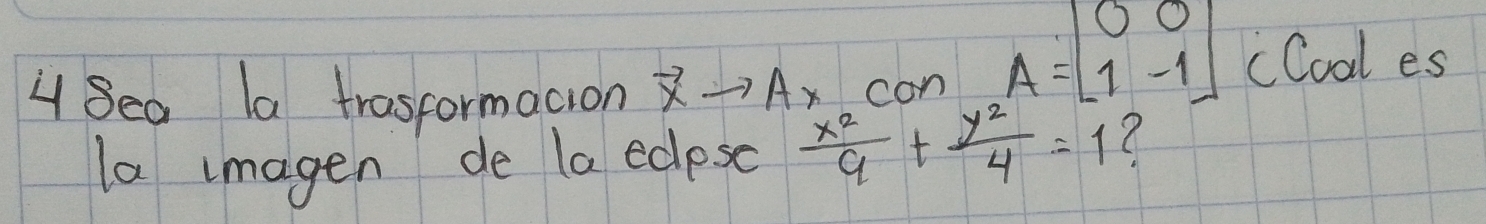 4 Sea la trasformacion x⃗ → Ax con A = [0 0; 1 -1] ¿Cual es
la imagen de la eclpse x²/9 + y²/4 = 1?